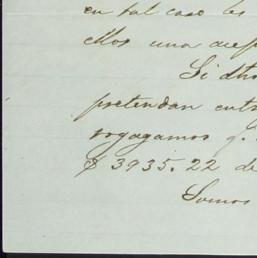 en tal caso les
ellos una acep
Si dho
pretendan entr
rogagamos q.
$ 3935.22 de
Somos